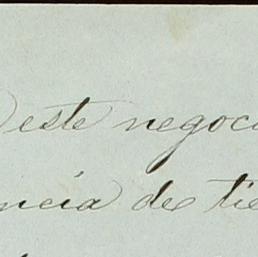 este negoc
ncia de tie